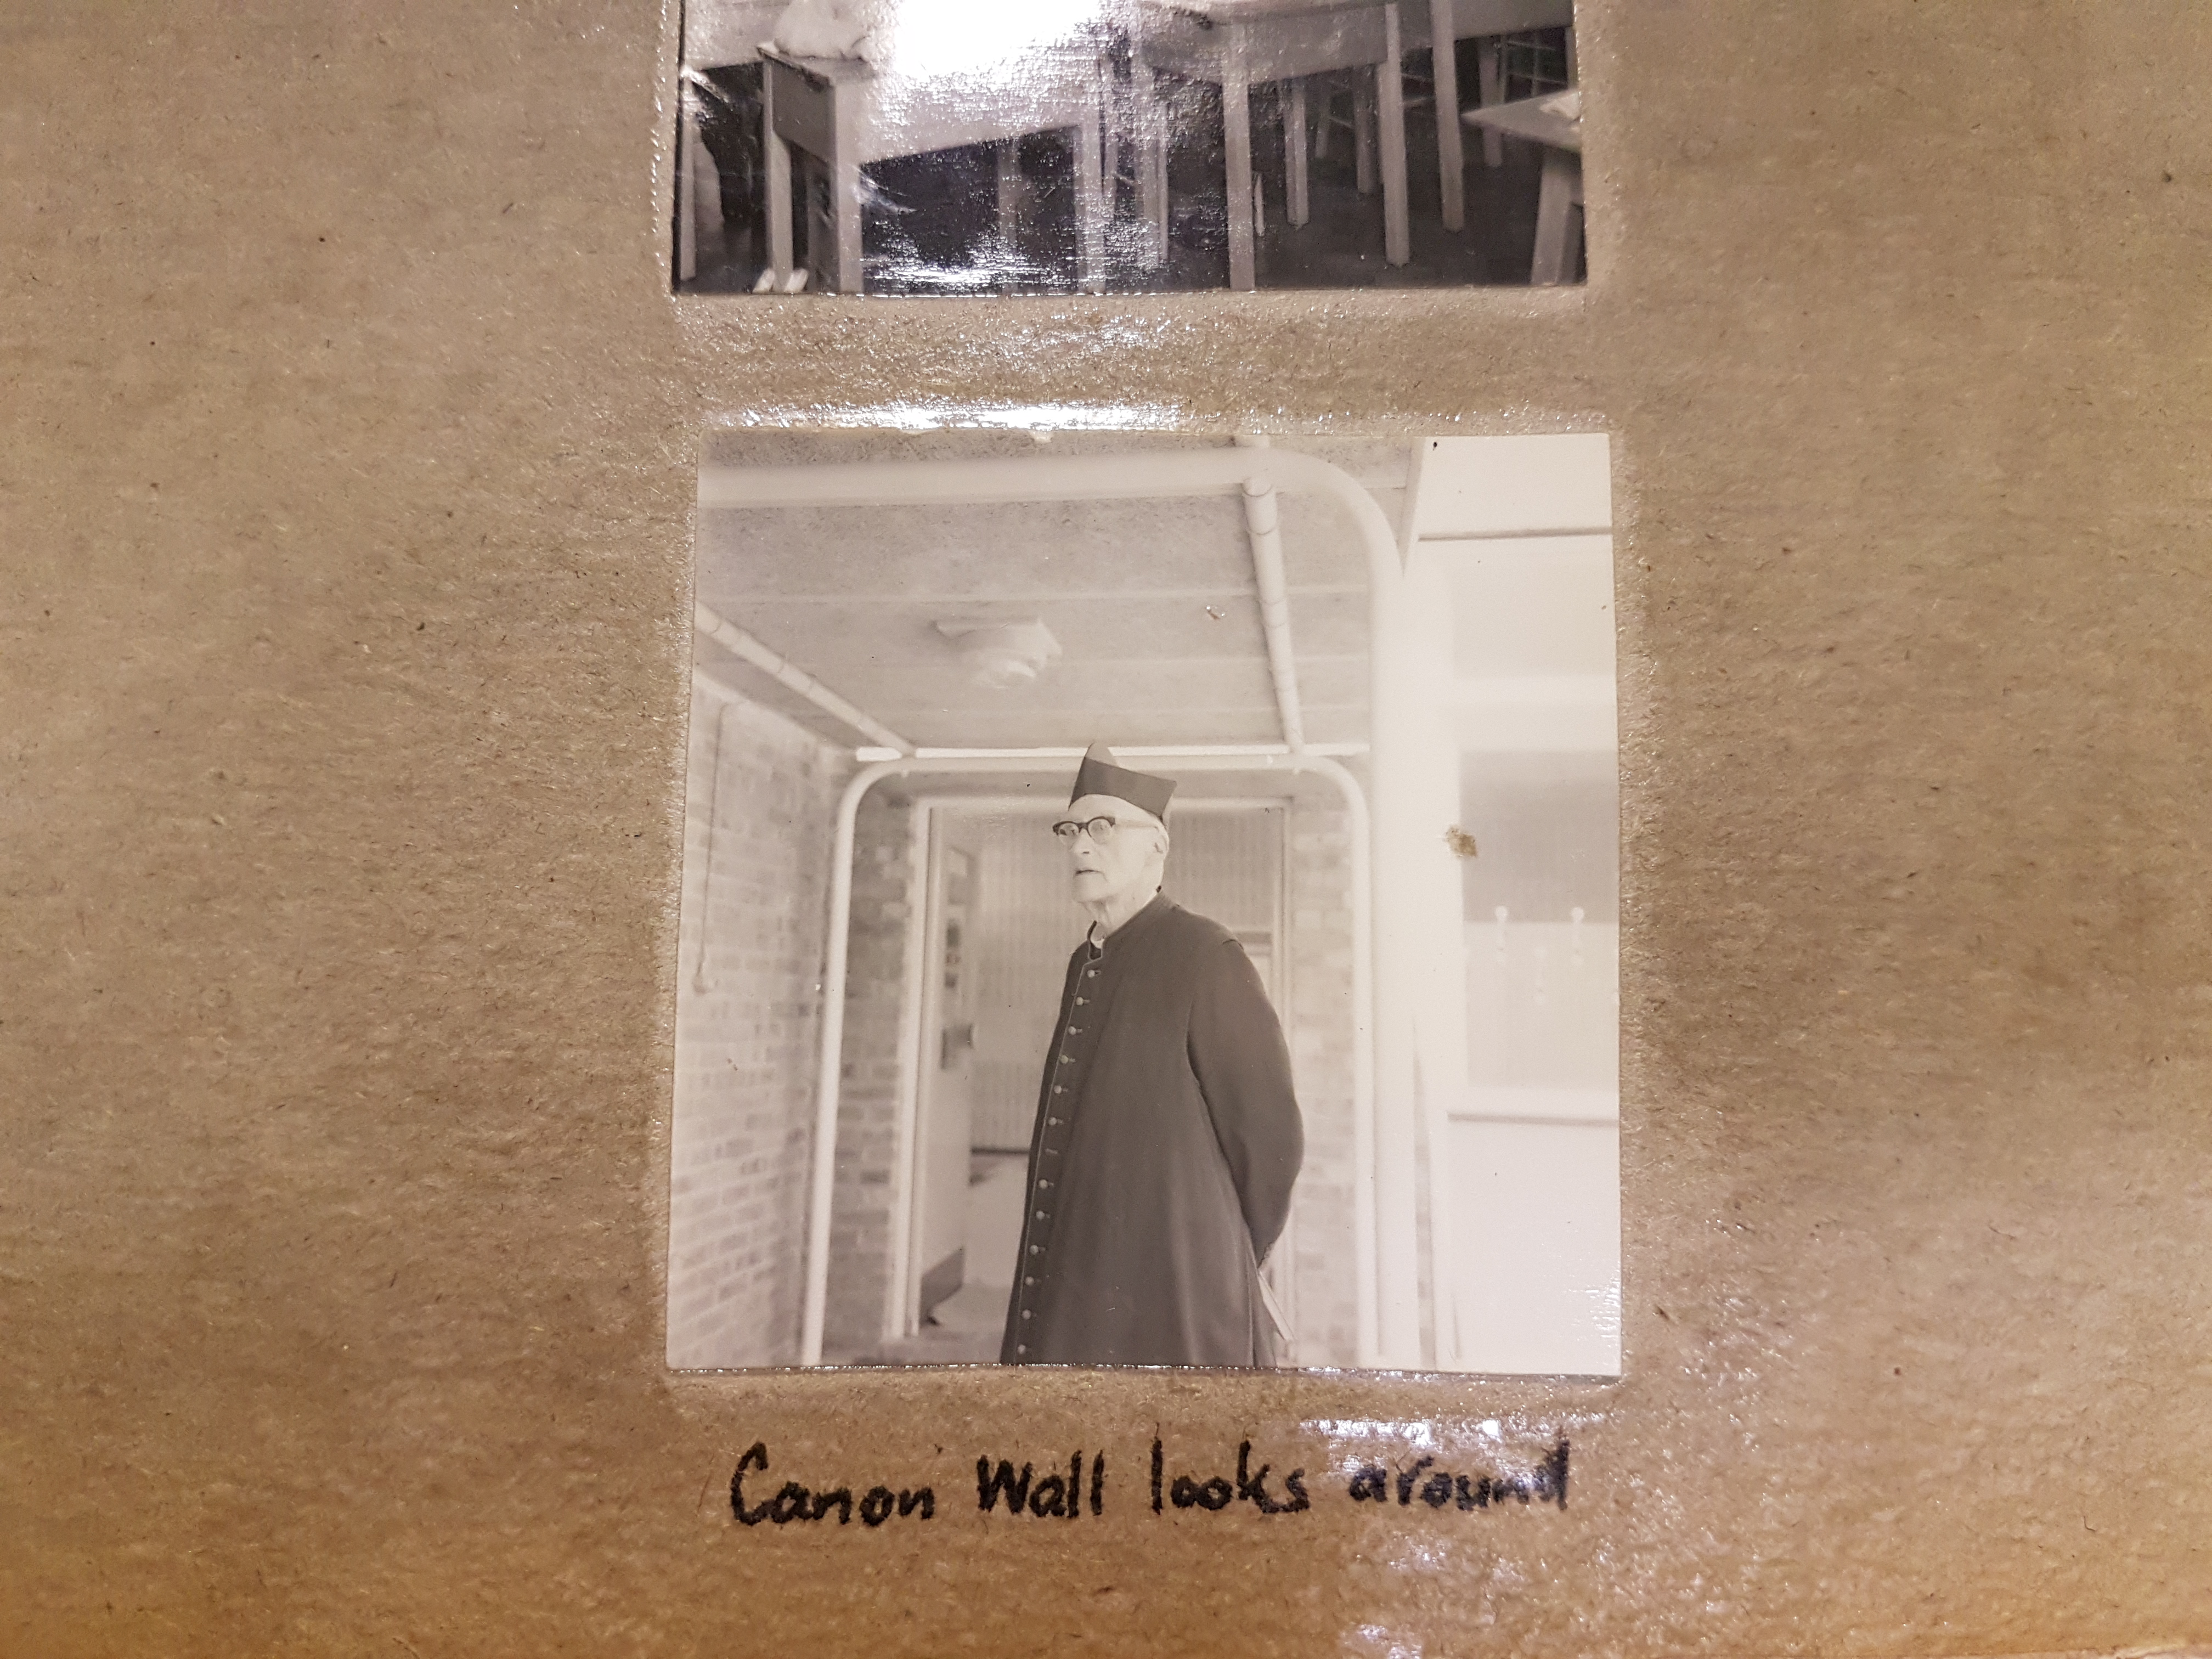 Canon Wall looks around